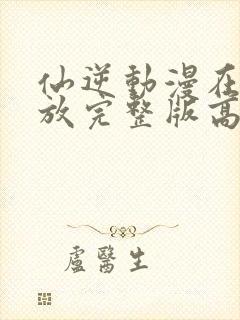 仙逆動漫在
放完整版高
盧醫生